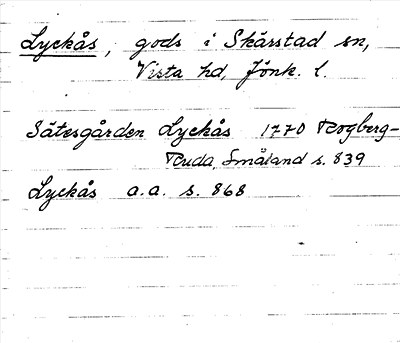 Lyckås, gods i Skärstad sn,
Vista hd, Jönk. l.
Sätesgården Lyckås 1770 Rogberg-
Ruda, Småland s. 839
Lyckås a.a. s. 868